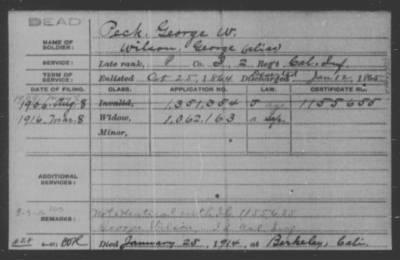 DEAD
NAME OF SOLDIER:
Peck, George W.
Wilson, George (alias)
SERVICE: Late rank, Co. 2 Reg't Cal. Inf.
TERM OF SERVICE: Enlisted Oct 25, 1864 Deserted Discharged Jan 12, 1865
DATE OF FILING. CLASS. APPLICATION NO. LAW. CERTIFICATE NO.
1906 Aug 8 Invalid, 1,351,354 1155655
1916 Mar. 8 Widow, 1,062,163
Minor,
ADDITIONAL SERVICES:
REMARKS: Not identical with 1155655
George Wilson, Cal Inf
Died January 25, 1914, at Berkeley, Cali.